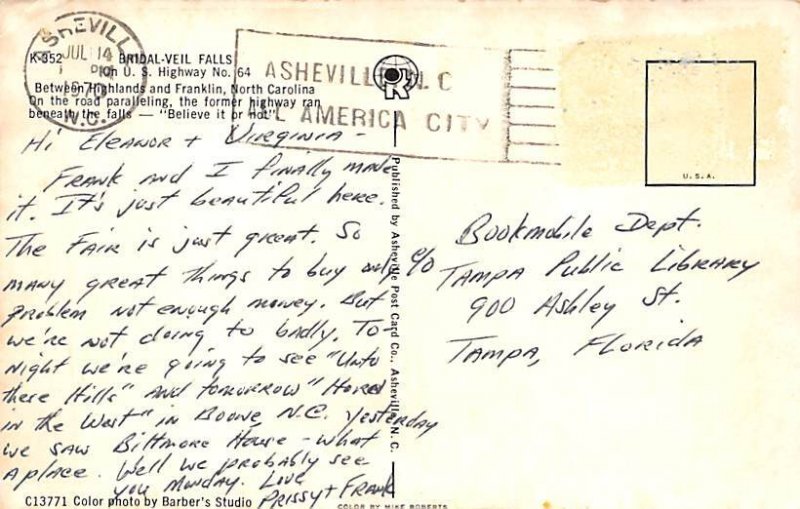 ASHEVILLE
JUL 14
PM
1970
N.C.
ASHEVILLE N.C
ALL AMERICA CITY
K-352 BRIDAL-VEIL FALLS
On U. S. Highway No. 64
Between Highlands and Franklin, North Carolina
On the road paralleling, the former highway ran
beneath the falls — "Believe it or not"
Hi Eleanor + Virginia -
Frank and I finally made
it. It's just beautiful here.
The Fair is just great. So
many great things to buy only
problem not enough money. But
we're not doing to badly. To-
night we're going to see "Unto
these Hills" and tomorrow "Horn
in the West" in Boone, N.C. Yesterday
we saw Biltmore House - what
a place. Well we probably see
you Monday. Love
Prissy + Frank
C13771 Color photo by Barber's Studio
Published by Asheville Post Card Co., Asheville, N. C.
COLOR BY MIKE ROBERTS
U.S.A.
c/o Bookmobile Dept.
Tampa Public Library
900 Ashley St.
Tampa, Florida